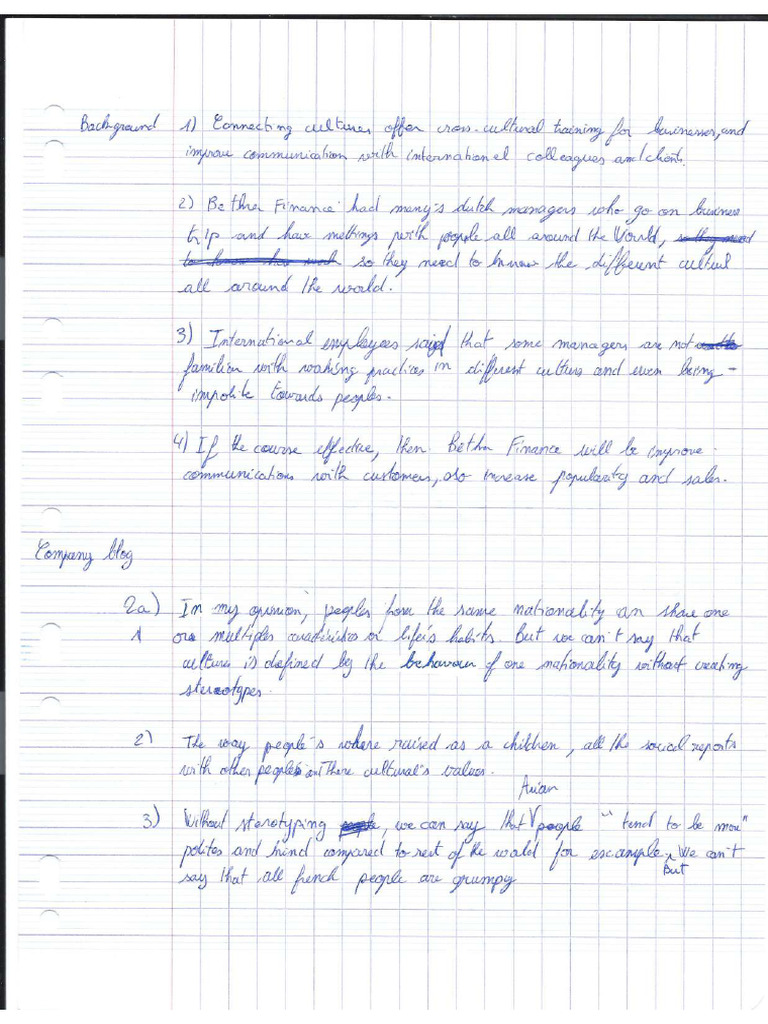 Background 1) Connecting cultures offer cross-cultural training for businesses, and
improve communication with internationel colleagues and clients.
2) Bethra Finance had many's dutch managers who go on business
trip and have mettings with people all around the World,
so they need to know the different cultul
all around the world.
3) International employees said that some managers are not
familiar with working practices in different culture and even being
impolite towards peoples.
4) If the course effective, then Bethra Finance will be improve
communications with customers, also increase popularity and sales.
Company blog
2a) In my opinion, peoples from the same nationality can share one
1 ore multiples caractéristics or life's habits. But we can't say that
culture is defined by the behaviour of one nationality without creating
stereotypes.
2) The way people's where raised as a children, all the social reports
with other people's and there cultural's values.
Asian
3) Without sterotyping, we can say that people "tend to be more"
polites and kind compared to rest of the world for escample. We can't
But
say that all french people are grumpy